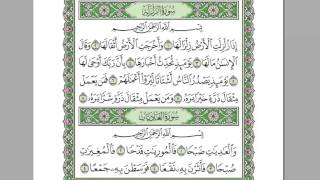 سُورَةُ الزَّلْزَلَةِ
بِسْمِ اللَّهِ الرَّحْمَٰنِ الرَّحِيمِ
إِذَا زُلْزِلَتِ الْأَرْضُ زِلْزَالَهَا ١ وَأَخْرَجَتِ الْأَرْضُ أَثْقَالَهَا ٢ وَقَالَ
الْإِنسَٰنُ مَا لَهَا ٣ يَوْمَئِذٍ تُحَدِّثُ أَخْبَارَهَا ٤ بِأَنَّ رَبَّكَ أَوْحَىٰ لَهَا
٥ يَوْمَئِذٍ يَصْدُرُ النَّاسُ أَشْتَاتًا لِّيُرَوْا أَعْمَٰلَهُمْ ٦ فَمَن يَعْمَلْ
مِثْقَالَ ذَرَّةٍ خَيْرًا يَرَهُ ٧ وَمَن يَعْمَلْ مِثْقَالَ ذَرَّةٍ شَرًّا يَرَهُ ٨
سُورَةُ الْعَادِيَاتِ
بِسْمِ اللَّهِ الرَّحْمَٰنِ الرَّحِيمِ
وَالْعَٰدِيَٰتِ ضَبْحًا ١ فَالْمُورِيَٰتِ قَدْحًا ٢ فَالْمُغِيرَٰتِ
صُبْحًا ٣ فَأَثَرْنَ بِهِ نَقْعًا ٤ فَوَسَطْنَ بِهِ جَمْعًا ٥